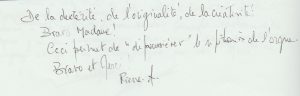 De la dextérité, de l'originalité, de la créativité.
Bravo Madame!
Ceci permet de "dépoussiérer" le répertoire de l'orgue.
Bravo et Merci
Pierre